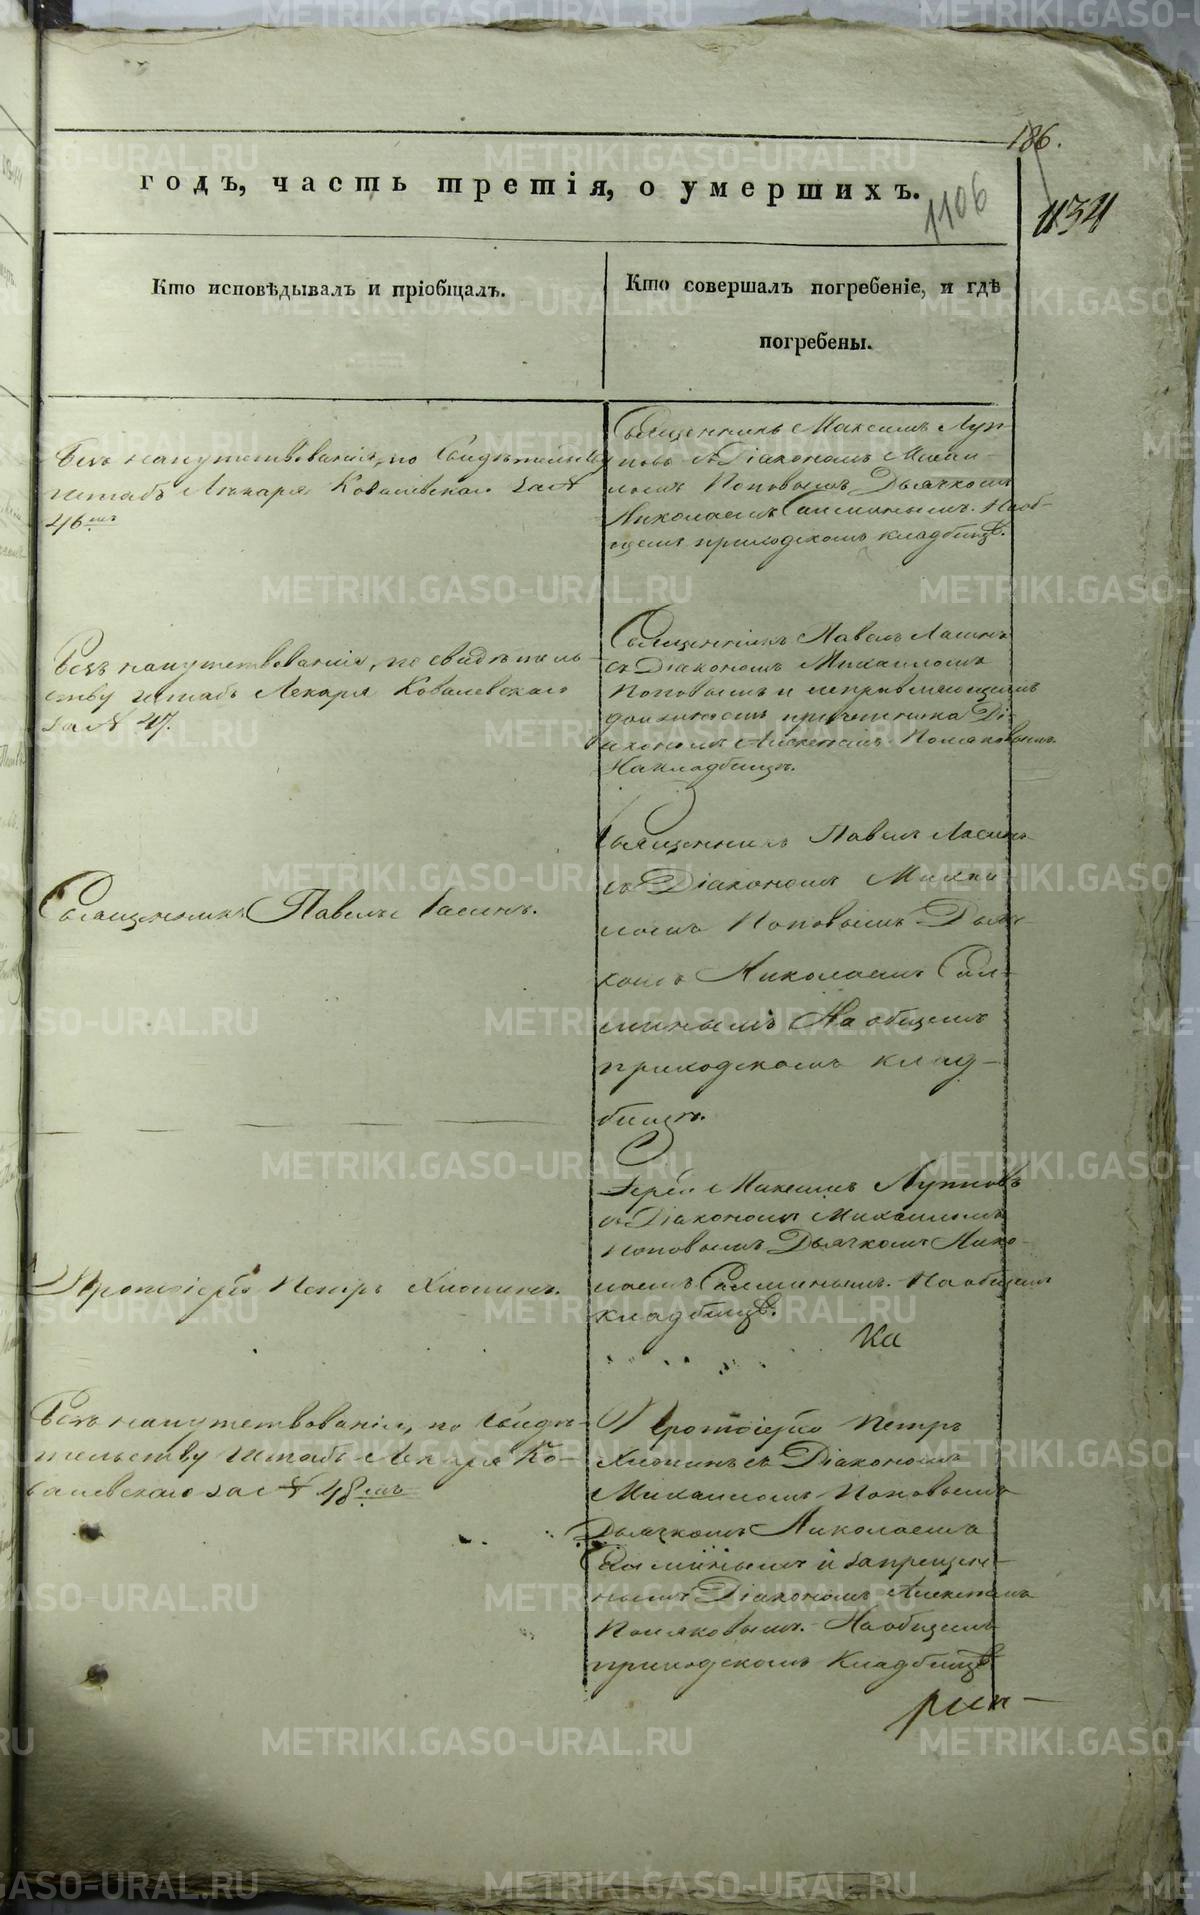 186.
годъ, часть третія, о умершихъ.
1106
1134
Кто исповѣдывалъ и пріобщалъ.
Кто совершалъ погребеніе, и гдѣ
погребены.
Безъ напутствованія, по Свидѣтельству
штабъ Лѣкаря Ковалевскаго за №
46мъ
Священникъ Максимъ Луп-
повъ съ Діакономъ Михаи-
ломъ Поповымъ, Дьячкомъ
Николаемъ На об-
щемъ приходскомъ кладбищѣ.
Безъ напутствованія, по свидѣтель-
ству штабъ Лекаря Ковалевскаго
за № 47.
Священникъ Павелъ
съ Діакономъ Михаиломъ
Поповымъ и исправляющимъ
должность причетника Ді-
акономъ Алексѣемъ Поляковымъ.
На кладбищѣ.
Священникъ Павелъ
Священникъ Павелъ
съ Діакономъ Михаи
ломъ Поповымъ Дьяч-
комъ Николаемъ
На общемъ
приходскомъ клад-
бищѣ.
Протоіерей Петръ
Іерей Максимъ Лупповъ
съ Діакономъ Михаиломъ
Поповымъ Дьячкомъ Нико-
лаемъ На общемъ
кладбищѣ.
Ка
Безъ напутствованія, по Свидѣ-
тельству Штабъ Лекаря Ко-
валевскаго за № 48мъ
Протоіерей Петръ
съ Діакономъ
Михаиломъ Поповымъ
Дьячкомъ Николаемъ
и запрещен-
нымъ Діакономъ Алексѣемъ
Поляковымъ. На общемъ
приходскомъ Кладбищѣ
рин-
METRIKI.GASO-URAL.RU